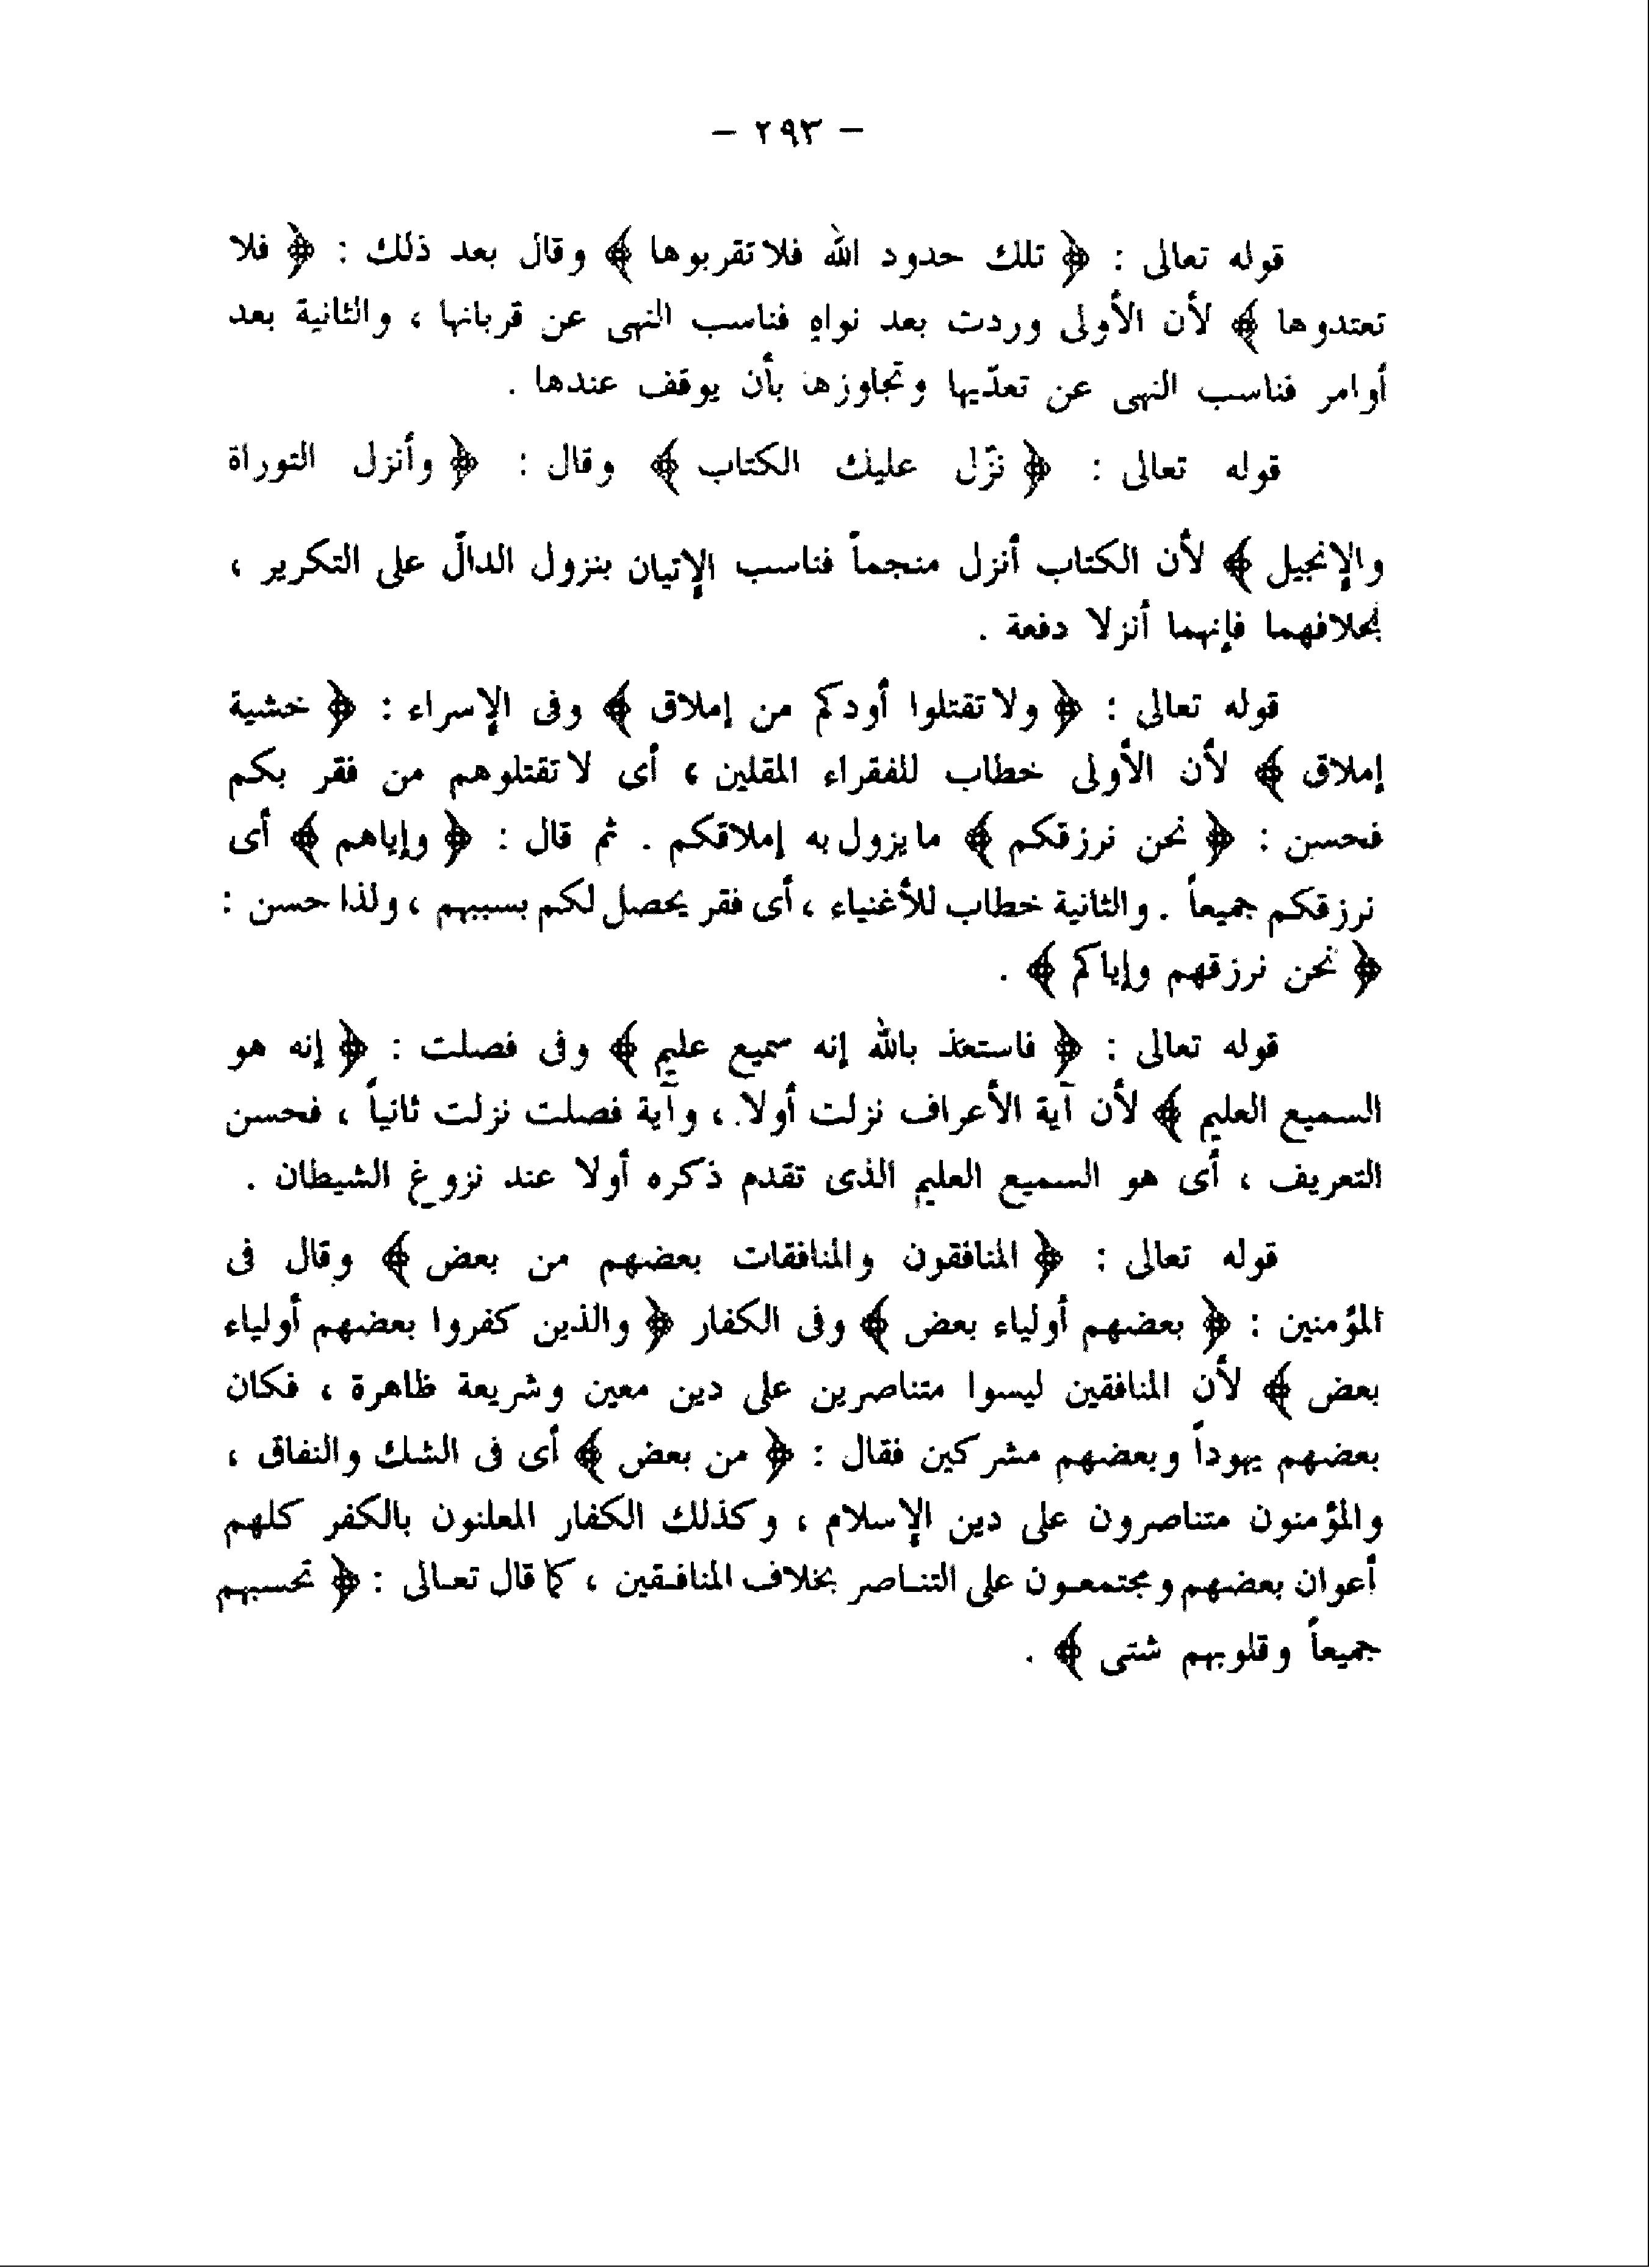 – ٢٩٣ –
قوله تعالى : ﴿ تلك حدود الله فلا تقربوها ﴾ وقال بعد ذلك : ﴿ فلا
تعتدوها ﴾ لأن الأولى وردت بعد نواهٍ فناسب النهى عن قربانها ، والثانية بعد
أوامر فناسب النهى عن تعدّيها وتجاوزها بأن يوقف عندها .
قوله تعالى : ﴿ نزّل عليك الكتاب ﴾ وقال : ﴿ وأنزل التوراة
والإنجيل ﴾ لأن الكتاب أنزل منجماً فناسب الإتيان بنزول الدالّ على التكرير ،
بخلافهما فإنهما أنزلا دفعة .
قوله تعالى : ﴿ ولا تقتلوا أودكم من إملاق ﴾ وفى الإسراء : ﴿ خشية
إملاق ﴾ لأن الأولى خطاب للفقراء المقلين ، أى لا تقتلوهم من فقر بكم
فحسن : ﴿ نحن نرزقكم ﴾ ما يزول به إملاقكم . ثم قال : ﴿ وإياهم ﴾ أى
نرزقكم جميعاً . والثانية خطاب للأغنياء ، أى فقر يحصل لكم بسببهم ، ولذا حسن :
﴿ نحن نرزقهم وإياكم ﴾ .
قوله تعالى : ﴿ فاستعذ بالله إنه سميع عليم ﴾ وفى فصلت : ﴿ إنه هو
السميع العليم ﴾ لأن آية الأعراف نزلت أولا ، وآية فصلت نزلت ثانياً ، فحسن
التعريف ، أى هو السميع العليم الذى تقدم ذكره أولا عند نزوغ الشيطان .
قوله تعالى : ﴿ المنافقون والمنافقات بعضهم من بعض ﴾ وقال فى
المؤمنين : ﴿ بعضهم أولياء بعض ﴾ وفى الكفار ﴿ والذين كفروا بعضهم أولياء
بعض ﴾ لأن المنافقين ليسوا متناصرين على دين معين وشريعة ظاهرة ، فكان
بعضهم يهوداً وبعضهم مشركين فقال : ﴿ من بعض ﴾ أى فى الشك والنفاق ،
والمؤمنون متناصرون على دين الإسلام ، وكذلك الكفار المعلنون بالكفر كلهم
أعوان بعضهم ومجتمعون على التناصر بخلاف المنافقين ، كما قال تعالى : ﴿ تحسبهم
جميعاً وقلوبهم شتى ﴾ .